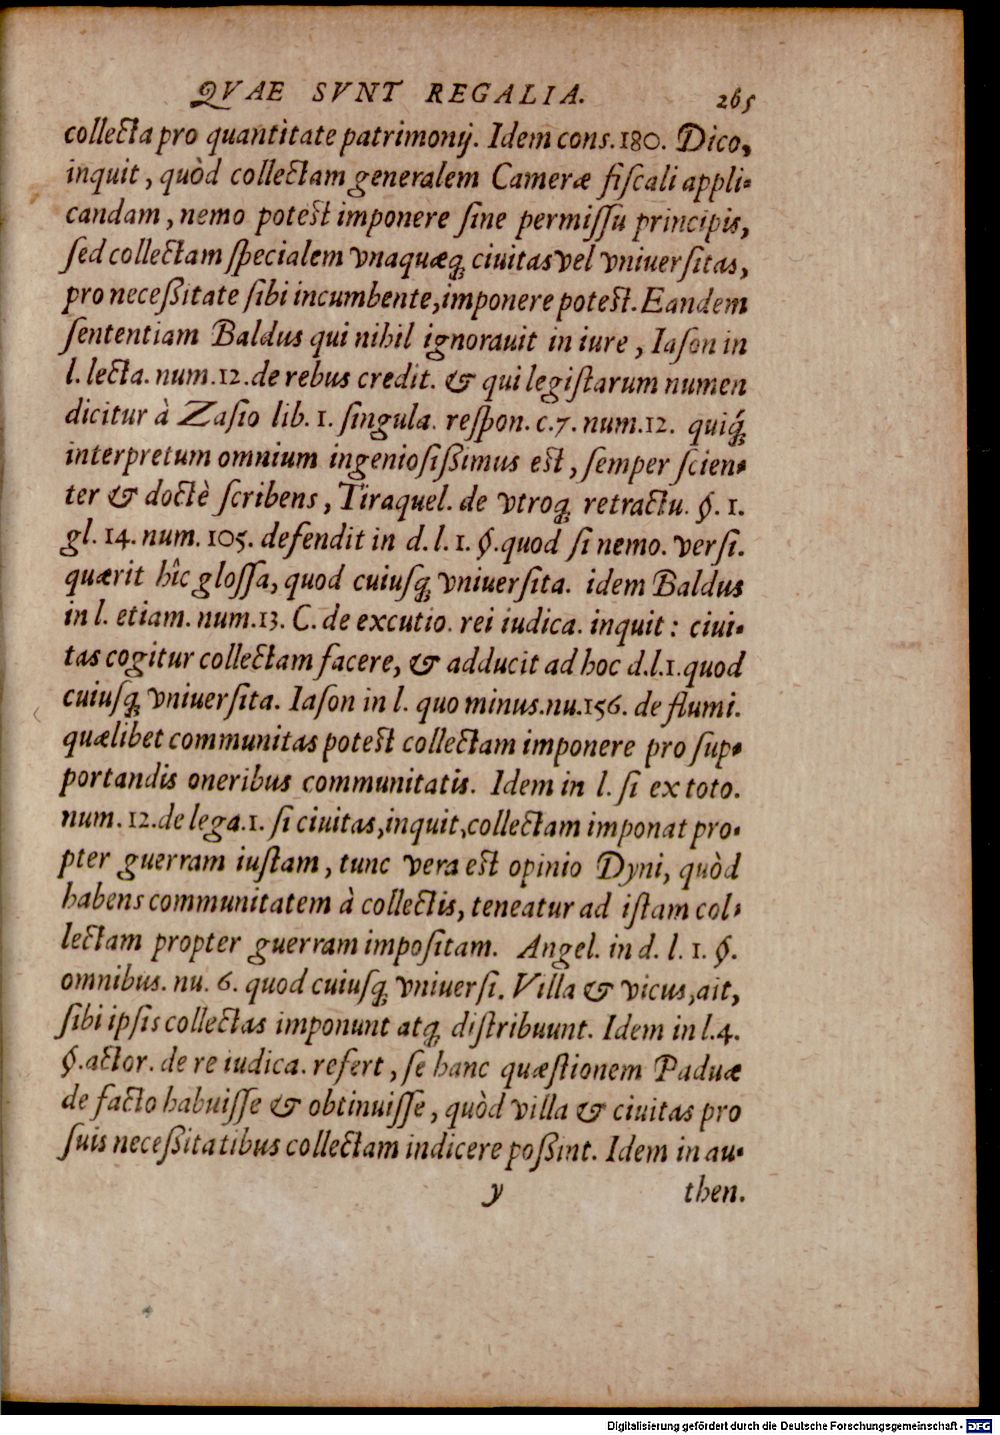 QVAE SVNT REGALIA. 265
collecta pro quantitate patrimonij. Idem cons. 180. Dico,
inquit, quòd collectam generalem Cameræ fiſcali appli-
candam, nemo potest imponere ſine permiſſu principis,
ſed collectam ſpecialem vnaquæq; ciuitas vel vniuerſitas,
pro neceßitate ſibi incumbente, imponere potest. Eandem
ſententiam Baldus qui nihil ignorauit in iure, Iaſon in
l. lecta. num. 12. de rebus credit. & qui legiſtarum numen
dicitur à Zaſio lib. 1. ſingula. reſpon. c. 7. num. 12. quiq́;
interpretum omnium ingenioſißimus est, ſemper ſcien-
ter & doctè ſcribens, Tiraquel. de vtroq; retractu. §. 1.
gl. 14. num. 105. defendit in d. l. 1. §. quod ſi nemo. verſi.
quærit hîc gloſſa, quod cuiuſq; vniuerſita. idem Baldus
in l. etiam. num. 13. C. de excutio. rei iudica. inquit: ciui-
tas cogitur collectam facere, & adducit ad hoc d. l. 1. quod
cuiuſq; vniuerſita. Iaſon in l. quo minus. nu. 156. de flumi.
quælibet communitas potest collectam imponere pro ſup-
portandis oneribus communitatis. Idem in l. ſi ex toto.
num. 12. de lega. 1. ſi ciuitas, inquit, collectam imponat pro-
pter guerram iuſtam, tunc vera est opinio Dyni, quòd
habens communitatem à collectis, teneatur ad iſtam col-
lectam propter guerram impoſitam. Angel. in d. l. 1. §.
omnibus. nu. 6. quod cuiuſq; vniuerſi. Villa & vicus, ait,
ſibi ipſis collectas imponunt atq; diſtribuunt. Idem in l. 4.
§. actor. de re iudica. refert, ſe hanc quæſtionem Paduæ
de facto habuiſſe & obtinuiſſe, quòd villa & ciuitas pro
ſuis neceßitatibus collectam indicere poßint. Idem in au-
y then.
Digitalisierung gefördert durch die Deutsche Forschungsgemeinschaft - DFG